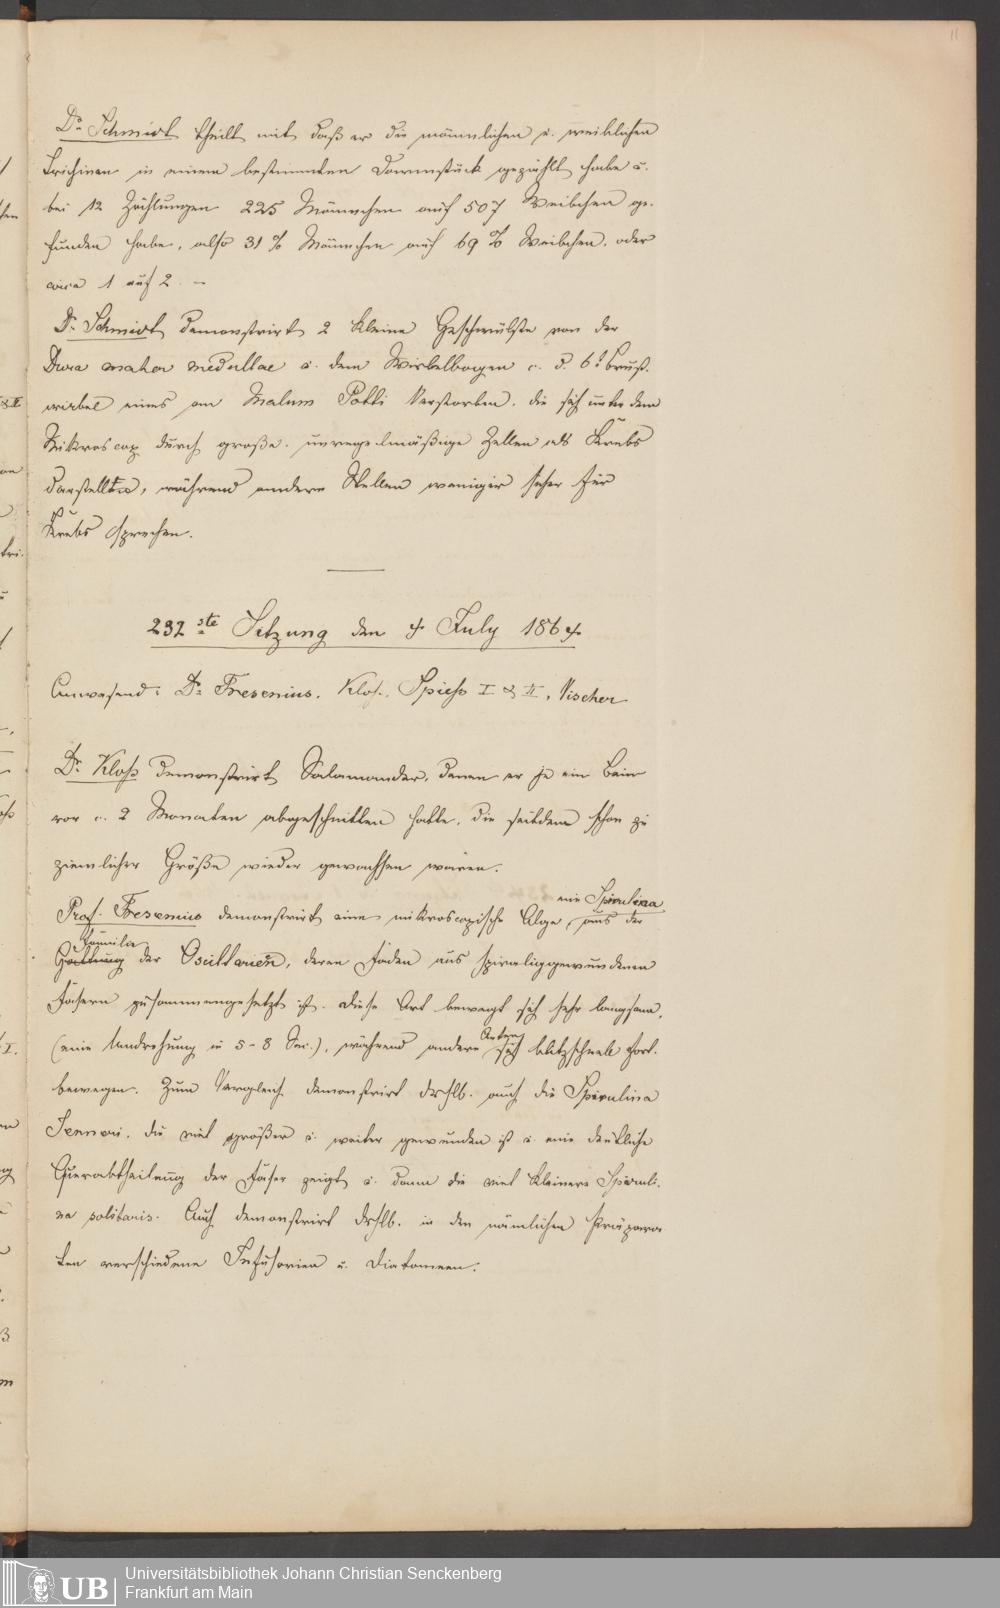 11
Dr. Schmidt theilt mit daß er die männlichen u. weiblichen
Trichinen in einem bestimmten Darmstück gezählt habe u.
bei 12 Zählungen 225 Männchen auf 507 Weibchen ge-
funden habe, also 31 % Männchen auf 69 % Weibchen, oder
circa 1 auf 2. –
Dr. Schmidt demonstrirt 2 kleine Geschwülste von der
Dura mater medullae u. dem Wirbelbogen d. 6t Brust-
wirbel eines an Malum Potti Verstorben. die sich unter dem
Mikroscop durch große, unregelmäßige Zellen als Krebs
darstellten, während andere Stellen weniger sicher für
Krebs sprechen.
232ste Sitzung den 4 July 1864.
Anwesend: Dr. Fresenius, Kloß, Spiess I & II, Vischer
Dr. Kloß demonstrirt Salamander, denen er je ein Bein
vor c. 2 Monaten abgeschnitten hatte, die seitdem schon zu
ziemlicher Größe wieder gewachsen waren.
eine Spirulina
Prof. Fresenius demonstrirt eine mikroscopische Alge, aus der
Familie
Gattung der Oscillarien, deren Faden aus spiraliggewundenen
Fasern zusammengesetzt ist. Diese Art bewegt sich sehr langsam,
Arten
(eine Umdrehung in 5–8 Sec.), während andere sich blitzschnell fort-
bewegen. Zum Vergleich demonstrirt drslb. auch die Spirulina
Jenneri, die viel größer u. weiter gewunden ist u. eine deutliche
Querabtheilung der Faser zeigt u. dann die viel kleinere Spiruli-
na solitaris. Auch demonstrirt drslb. in den nämlichen Präpara-
ten verschiedene Infusorien u. Diatomeen.
UB
Universitätsbibliothek Johann Christian Senckenberg
Frankfurt am Main